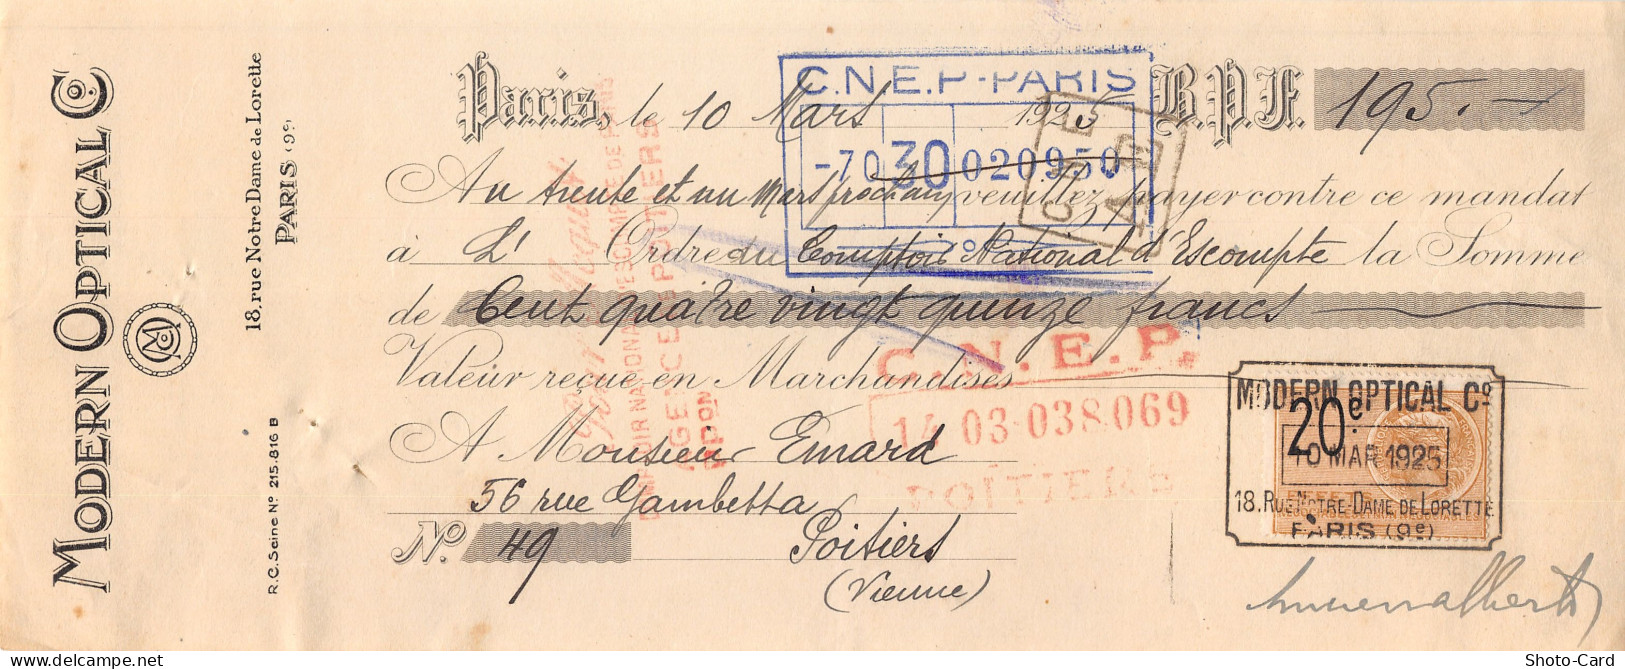 MODERN OPTICAL Co
MOC
18, rue Notre Dame de Lorette
PARIS (9e)
R.C. Seine No 215.816 B
Paris, le 10 Mars 1925 B.P.F. 195.-
C.N.E.P.-PARIS
-70 30 020950
Au trente et un Mars prochain veuillez payer contre ce mandat
à L' Ordre du Comptoir National d'Escompte la Somme
de Cent quatre vingt quinze francs
Valeur reçue en Marchandises
C.N.E.P.
14 03 038.069
POITIERS
COMPTOIR NATIONAL D'ESCOMPTE DE PARIS
AGENCE DE POITIERS
A Monsieur Emard
56 rue Gambetta
No. 49 Poitiers
(Vienne)
MODERN OPTICAL Co
20c
10 MAR 1925
18. RUE NOTRE-DAME DE LORETTE
PARIS (9e)
Shoto-Card